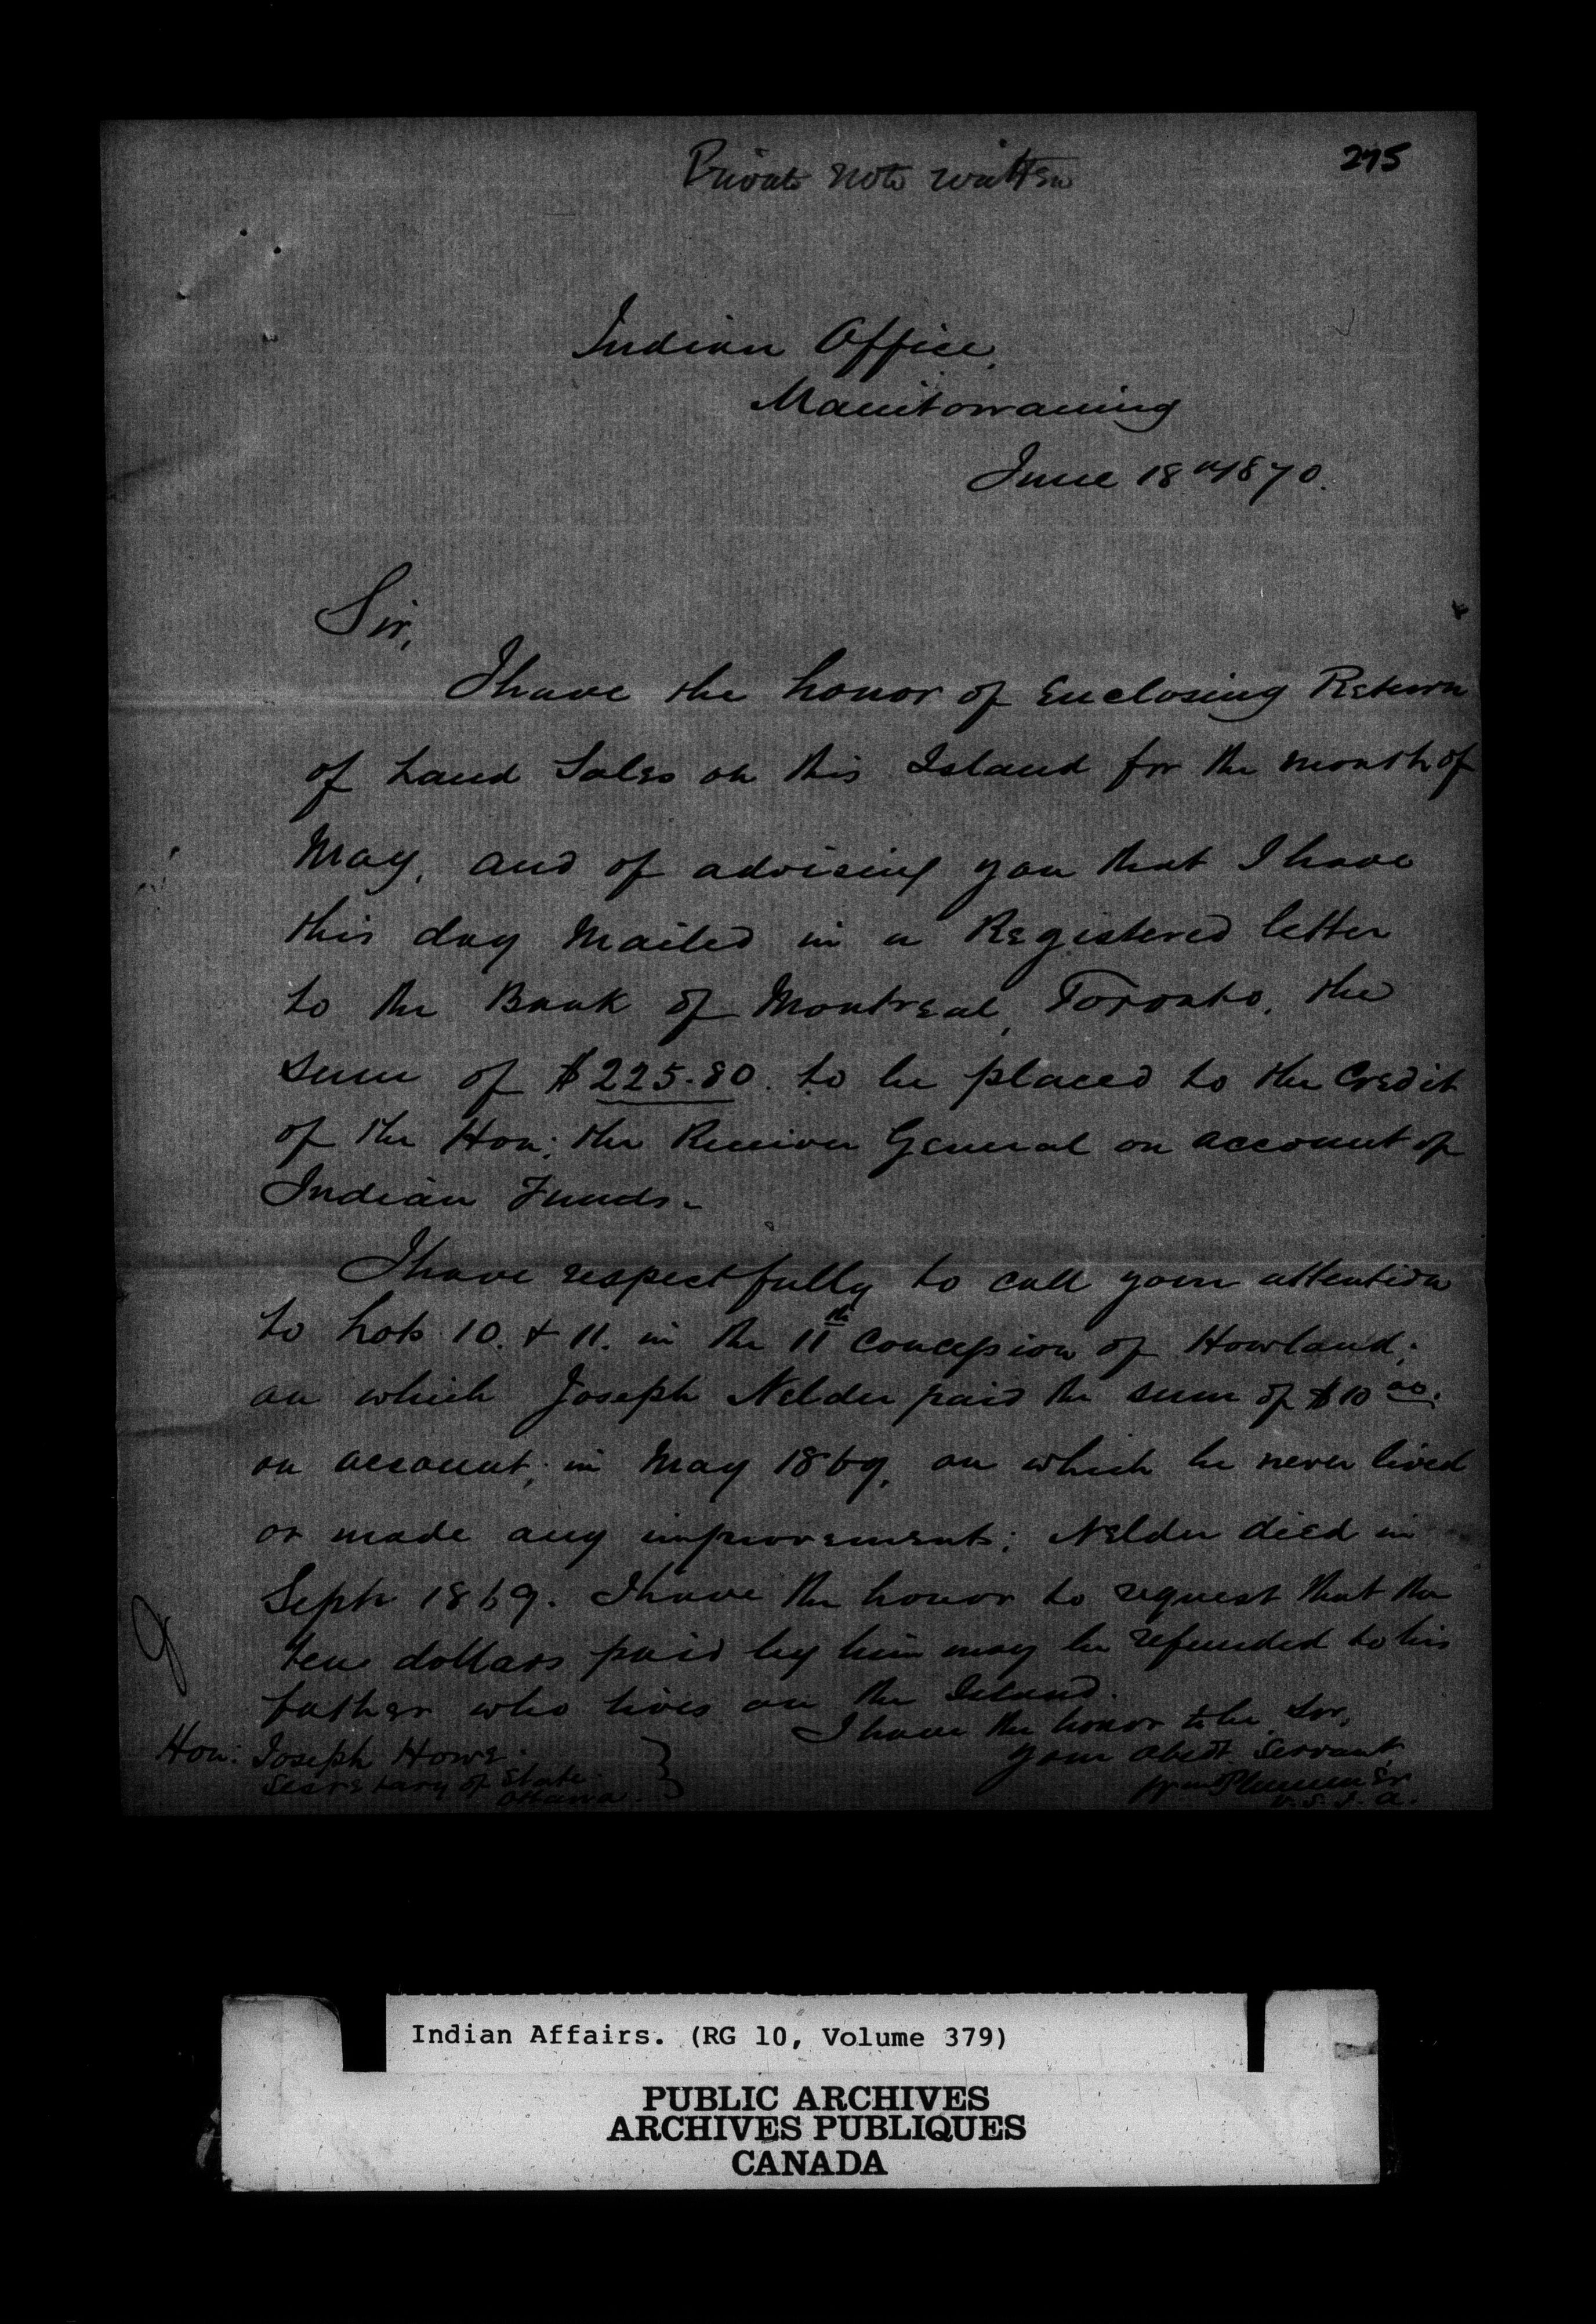 Private note written
275
Indian Office,
Manitowaning
June 18th 1870.
Sir,
I have the honor of Enclosing Return
of Land Sales on this Island for the month of
May, and of advising you that I have
this day Mailed in a Registered letter
to the Bank of Montreal, Toronto, the
sum of $225.80 to be placed to the Credit
of the Hon: the Receiver General on account of
Indian Funds.
I have respectfully to call your attention
to Lots 10. & 11. in the 11th Concession of Howland;
on which Joseph Nelder paid the sum of $10.00.
on account, in May 1869, on which he never lived
or made any improvements; Nelder died in
Septr 1869. I have the honor to request that the
ten dollars paid by him may be refunded to his
father who lives on the Island.
I have the honor to be Sir,
your obedt Servant
Wm Plummer
V.S.I.A.
Hon: Joseph Howe.
Secretary of State.
Ottawa.
Indian Affairs. (RG 10, Volume 379)
PUBLIC ARCHIVES
ARCHIVES PUBLIQUES
CANADA